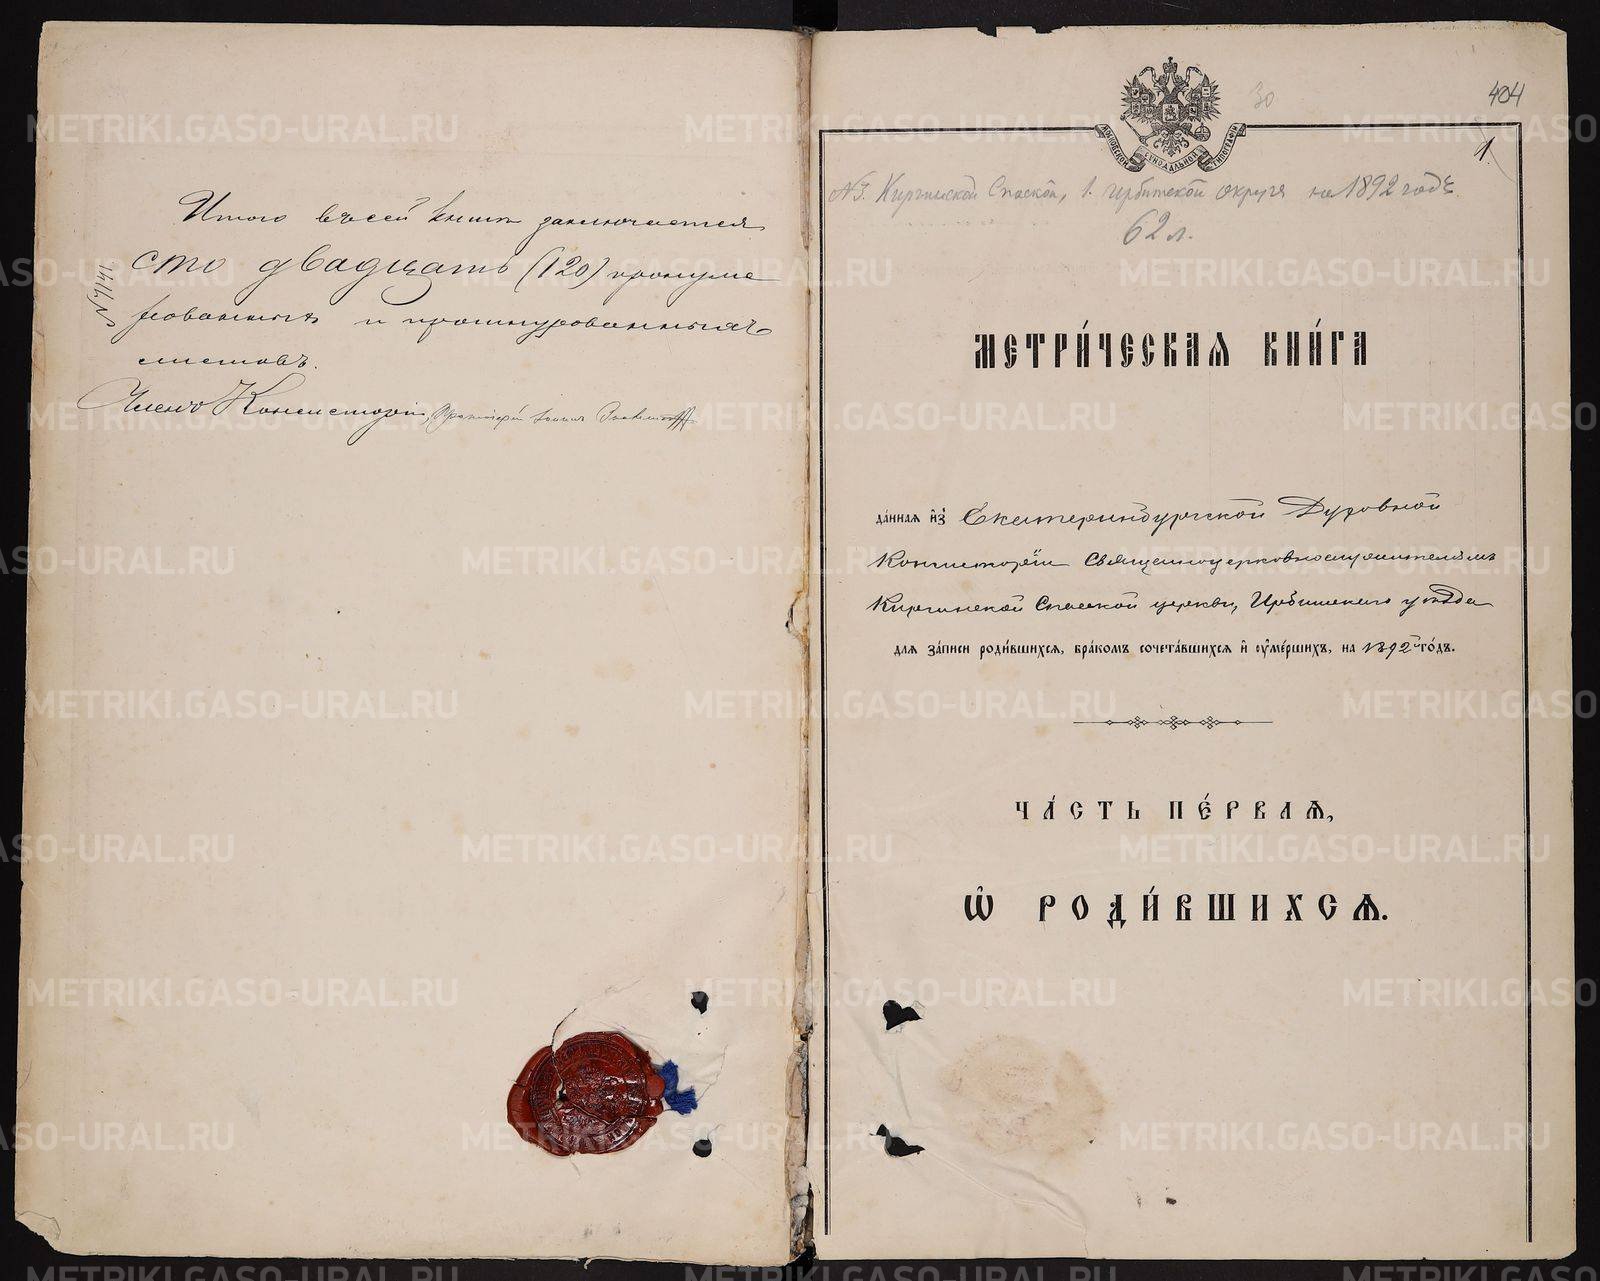 Итого въ сей книге заключается
сто двадцать (120) пронуме
рованныхъ и прошнурованныхъ
листовъ.
Членъ Консисторіи, Протоіерей Іоаннъ
№ 7141
МОСКОВСКОЙ СѴНОДАЛЬНОЙ ТИПОГРАФІИ
30
404
1
№3. Киргинской Спаской, 1. Ирбитскаго округа на 1892 годъ
62 л.
МЕТРИ́ЧЕСКАѦ КНИ́ГА
да́ннаѧ и҆з̾ Екатеринбургской Духовной
Консисторіи Священноцерковнослужителямъ
Киргинской Спасской церкви, Ирбитскаго уѣзда
длѧ за́писи роди́вшихсѧ, бра́комъ сочета́вшихсѧ и҆ ᲂу҆ме́ршихъ, на 1892й го́дъ.
ЧА́СТЬ ПЕ́РВАѦ,
Ѡ҆ РОДИ́ВШИХСѦ.
METRIKI.GASO-URAL.RU